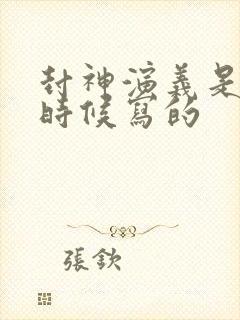 封神演義是
時候寫的
張欽